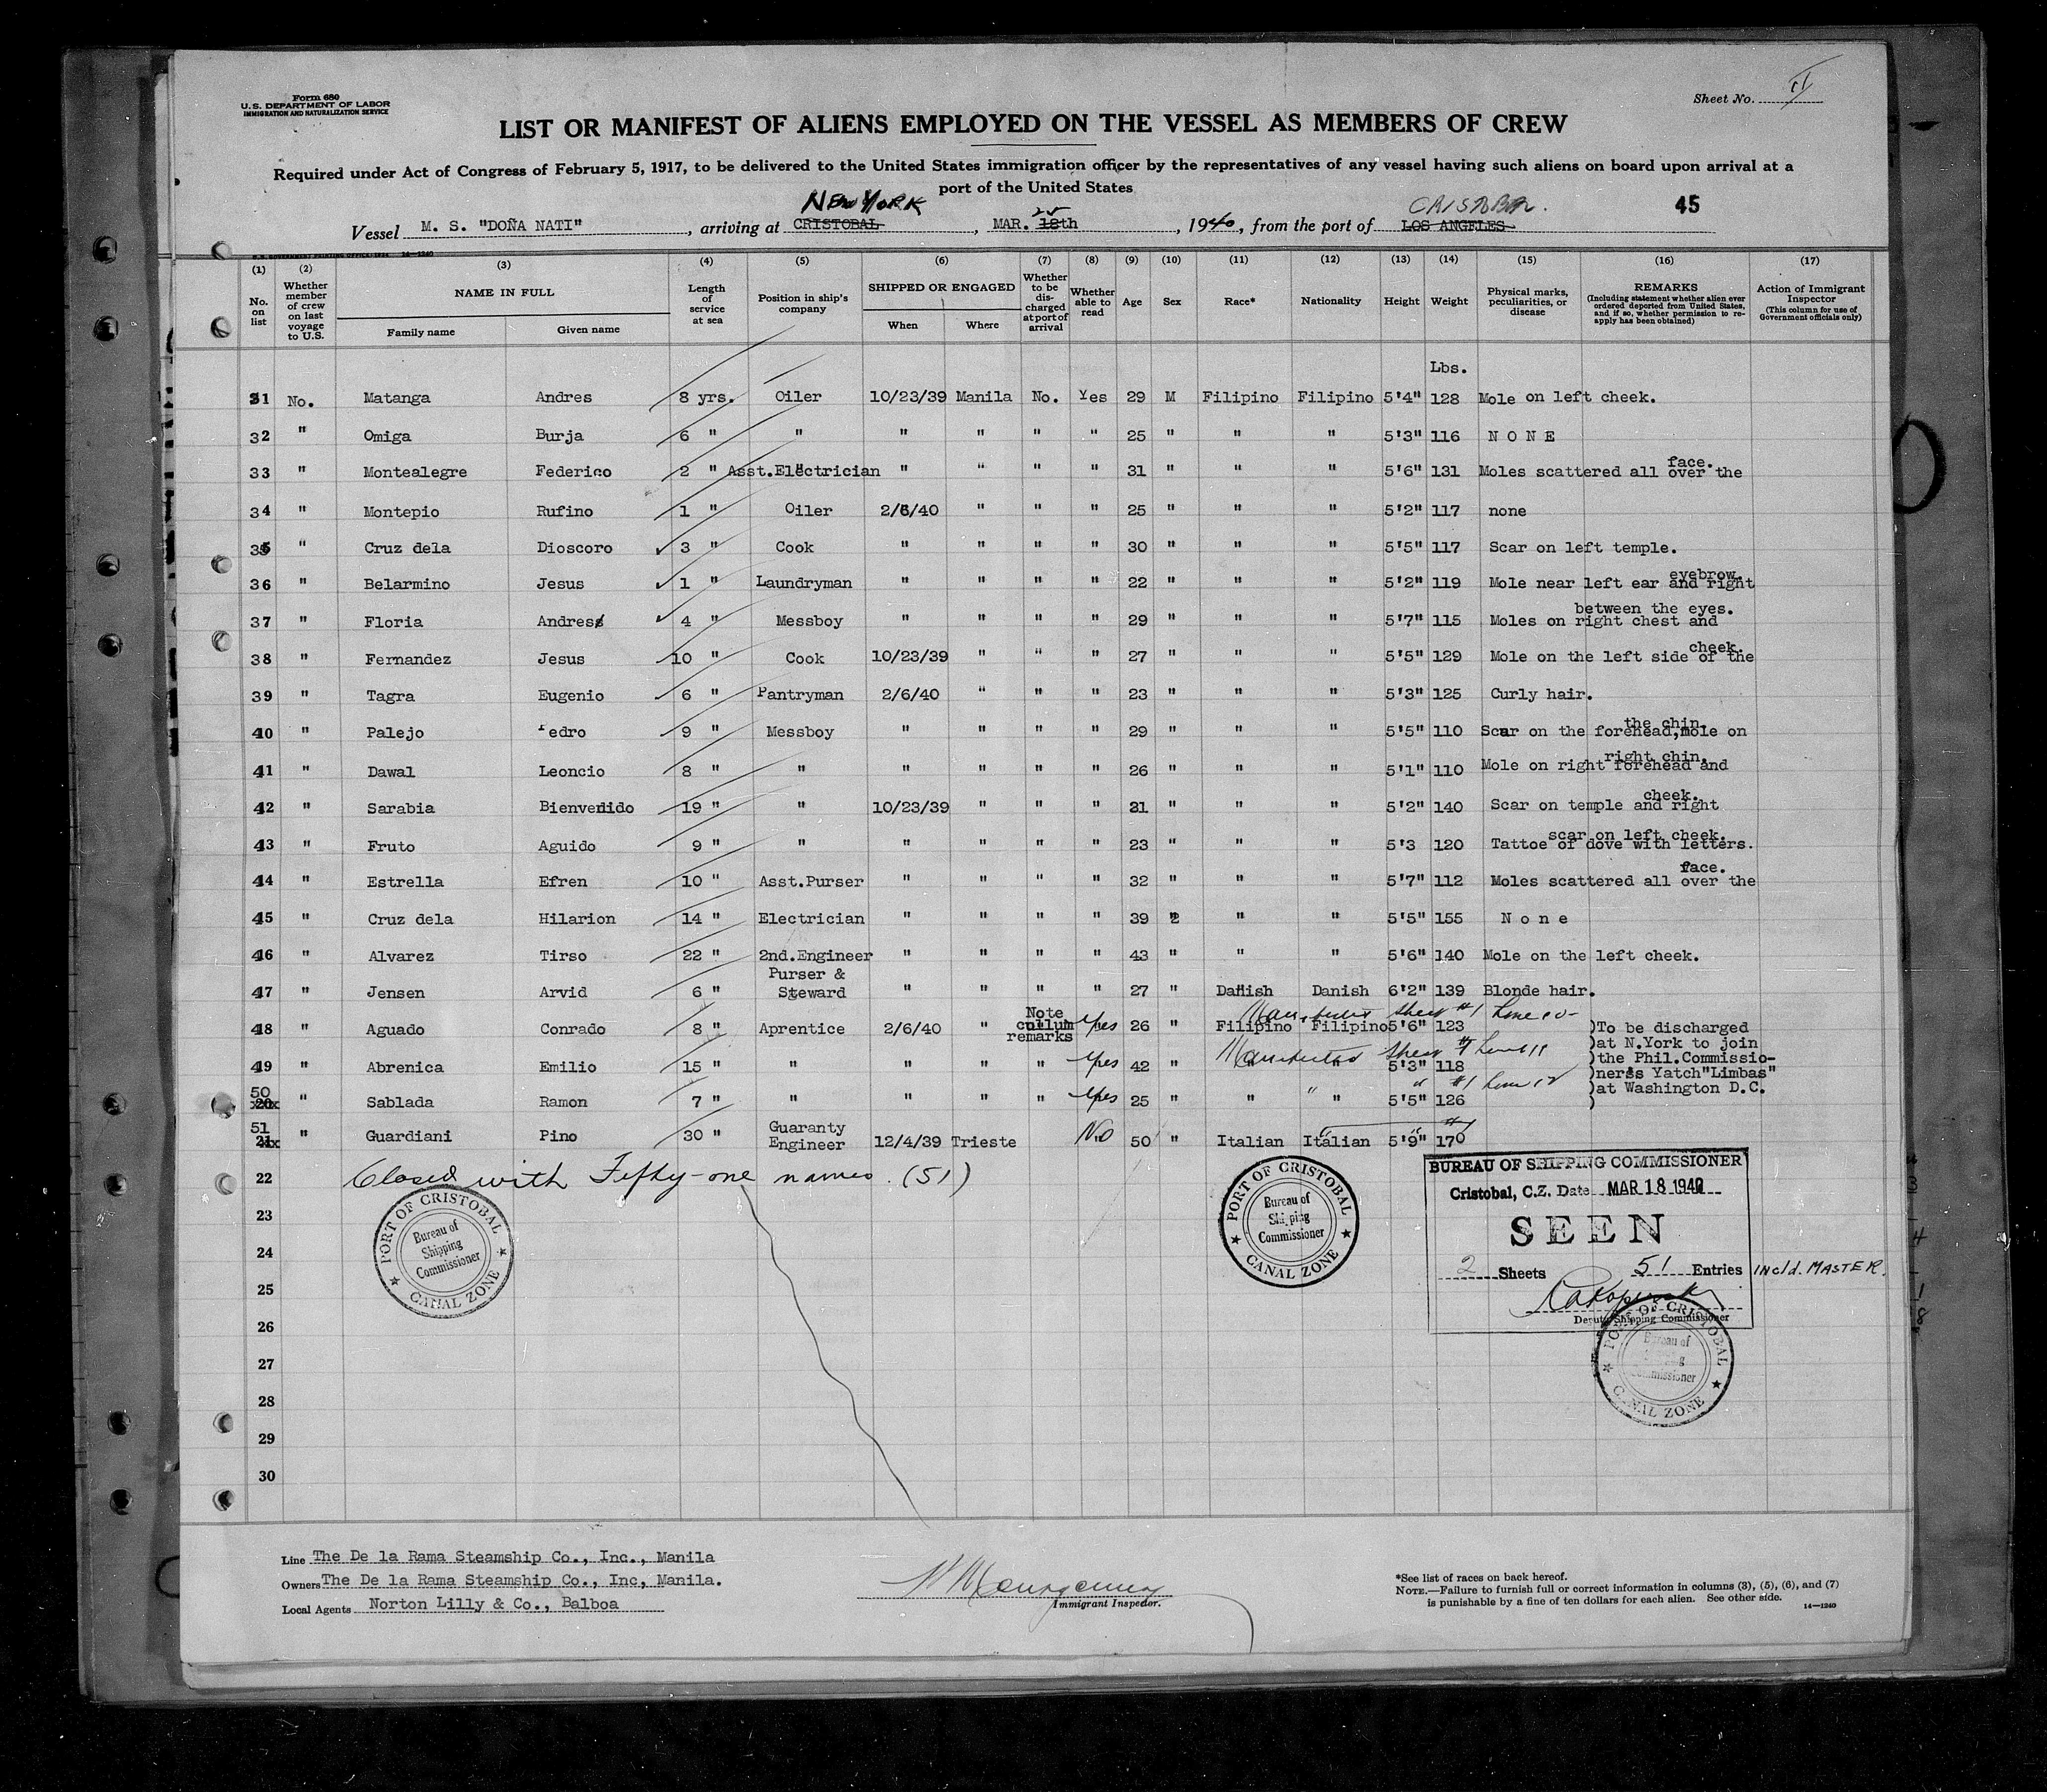 Form 680
U.S. DEPARTMENT OF LABOR
IMMIGRATION AND NATURALIZATION SERVICE
Sheet No. II
LIST OR MANIFEST OF ALIENS EMPLOYED ON THE VESSEL AS MEMBERS OF CREW
Required under Act of Congress of February 5, 1917, to be delivered to the United States immigration officer by the representatives of any vessel having such aliens on board upon arrival at a
port of the United States
NEW YORK 25 CRISTOBAL. 45
Vessel M. S. "DOÑA NATI", arriving at CRISTOBAL, MAR. 18th, 1940, from the port of LOS ANGELES
(1) (2) (3) (4) (5) (6) (7) (8) (9) (10) (11) (12) (13) (14) (15) (16) (17)
No. on list Whether member of crew on last voyage to U.S. NAME IN FULL Family name Given name Length of service at sea Position in ship's company SHIPPED OR ENGAGED When Where Whether to be discharged at port of arrival Whether able to read Age Sex Race* Nationality Height Weight Physical marks, peculiarities, or disease REMARKS (Including statement whether alien ever ordered deported from United States, and if so, whether permission to reapply has been obtained) Action of Immigrant Inspector (This column for use of Government officials only)
Lbs.
31 No. Matanga Andres 8 yrs. Oiler 10/23/39 Manila No. Yes 29 M Filipino Filipino 5'4" 128 Mole on left cheek.
32 " Omiga Burja 6 " " " " " " 25 " " " 5'3" 116 N O N E
33 " Montealegre Federico 2 " Asst.Electrician " " " " 31 " " " 5'6" 131 Moles scattered all over the face.
34 " Montepio Rufino 1 " Oiler 2/6/40 " " " 25 " " " 5'2" 117 none
35 " Cruz dela Dioscoro 3 " Cook " " " " 30 " " " 5'5" 117 Scar on left temple.
36 " Belarmino Jesus 1 " Laundryman " " " " 22 " " " 5'2" 119 Mole near left ear and right eyebrow.
37 " Floria Andres 4 " Messboy " " " " 29 " " " 5'7" 115 Moles on right chest and between the eyes.
38 " Fernandez Jesus 10 " Cook 10/23/39 " " " 27 " " " 5'5" 129 Mole on the left side of the cheek.
39 " Tagra Eugenio 6 " Pantryman 2/6/40 " " " 23 " " " 5'3" 125 Curly hair.
40 " Palejo Pedro 9 " Messboy " " " " 29 " " " 5'5" 110 Scar on the forehead,mole on the chin.
41 " Dawal Leoncio 8 " " " " " " 26 " " " 5'1" 110 Mole on right forehead and right chin.
42 " Sarabia Bienvenido 19 " " 10/23/39 " " " 31 " " " 5'2" 140 Scar on temple and right cheek.
43 " Fruto Aguido 9 " " " " " " 23 " " " 5'3 120 Tattoe of dove with letters. scar on left cheek.
44 " Estrella Efren 10 " Asst.Purser " " " " 32 " " " 5'7" 112 Moles scattered all over the face.
45 " Cruz dela Hilarion 14 " Electrician " " " " 39 " " " 5'5" 155 N o n e
46 " Alvarez Tirso 22 " 2nd.Engineer " " " " 43 " " " 5'6" 140 Mole on the left cheek.
47 " Jensen Arvid 6 " Purser & Steward " " " " 27 " Danish Danish 6'2" 139 Blonde hair.
sheet #1 Line 10
48 " Aguado Conrado 8 " Aprentice 2/6/40 " Note cullum remarks Yes 26 " Filipino Filipino 5'6" 123 )To be discharged
)at N.York to join
sheet #1 Line 11
49 " Abrenica Emilio 15 " " " " " Yes 42 " 5'3" 118 )the Phil.Commissio-
)ners Yatch"Limbas"
" #1 Line 12
50 " Sablada Ramon 7 " " " " " Yes 25 " " " 5'5" 126 )at Washington D.C.
51 " Guardiani Pino 30 " Guaranty Engineer 12/4/39 Trieste No 50 " Italian Italian 5'9" 170
22 Closed with Fifty-one names. (51)
23
24
25
26
27
28
29
30
PORT OF CRISTOBAL
Bureau of Shipping Commissioner
CANAL ZONE
PORT OF CRISTOBAL
Bureau of Shipping Commissioner
CANAL ZONE
BUREAU OF SHIPPING COMMISSIONER
Cristobal, C.Z. Date MAR 18 1940
SEEN
2 Sheets 51 Entries Incld. MASTER.
Deputy Shipping Commissioner
PORT OF CRISTOBAL
Bureau of Shipping Commissioner
CANAL ZONE
Line The De la Rama Steamship Co., Inc., Manila
Owners The De la Rama Steamship Co., Inc, Manila.
Local Agents Norton Lilly & Co., Balboa
Immigrant Inspector.
*See list of races on back hereof.
NOTE.—Failure to furnish full or correct information in columns (3), (5), (6), and (7)
is punishable by a fine of ten dollars for each alien. See other side.
14—1240